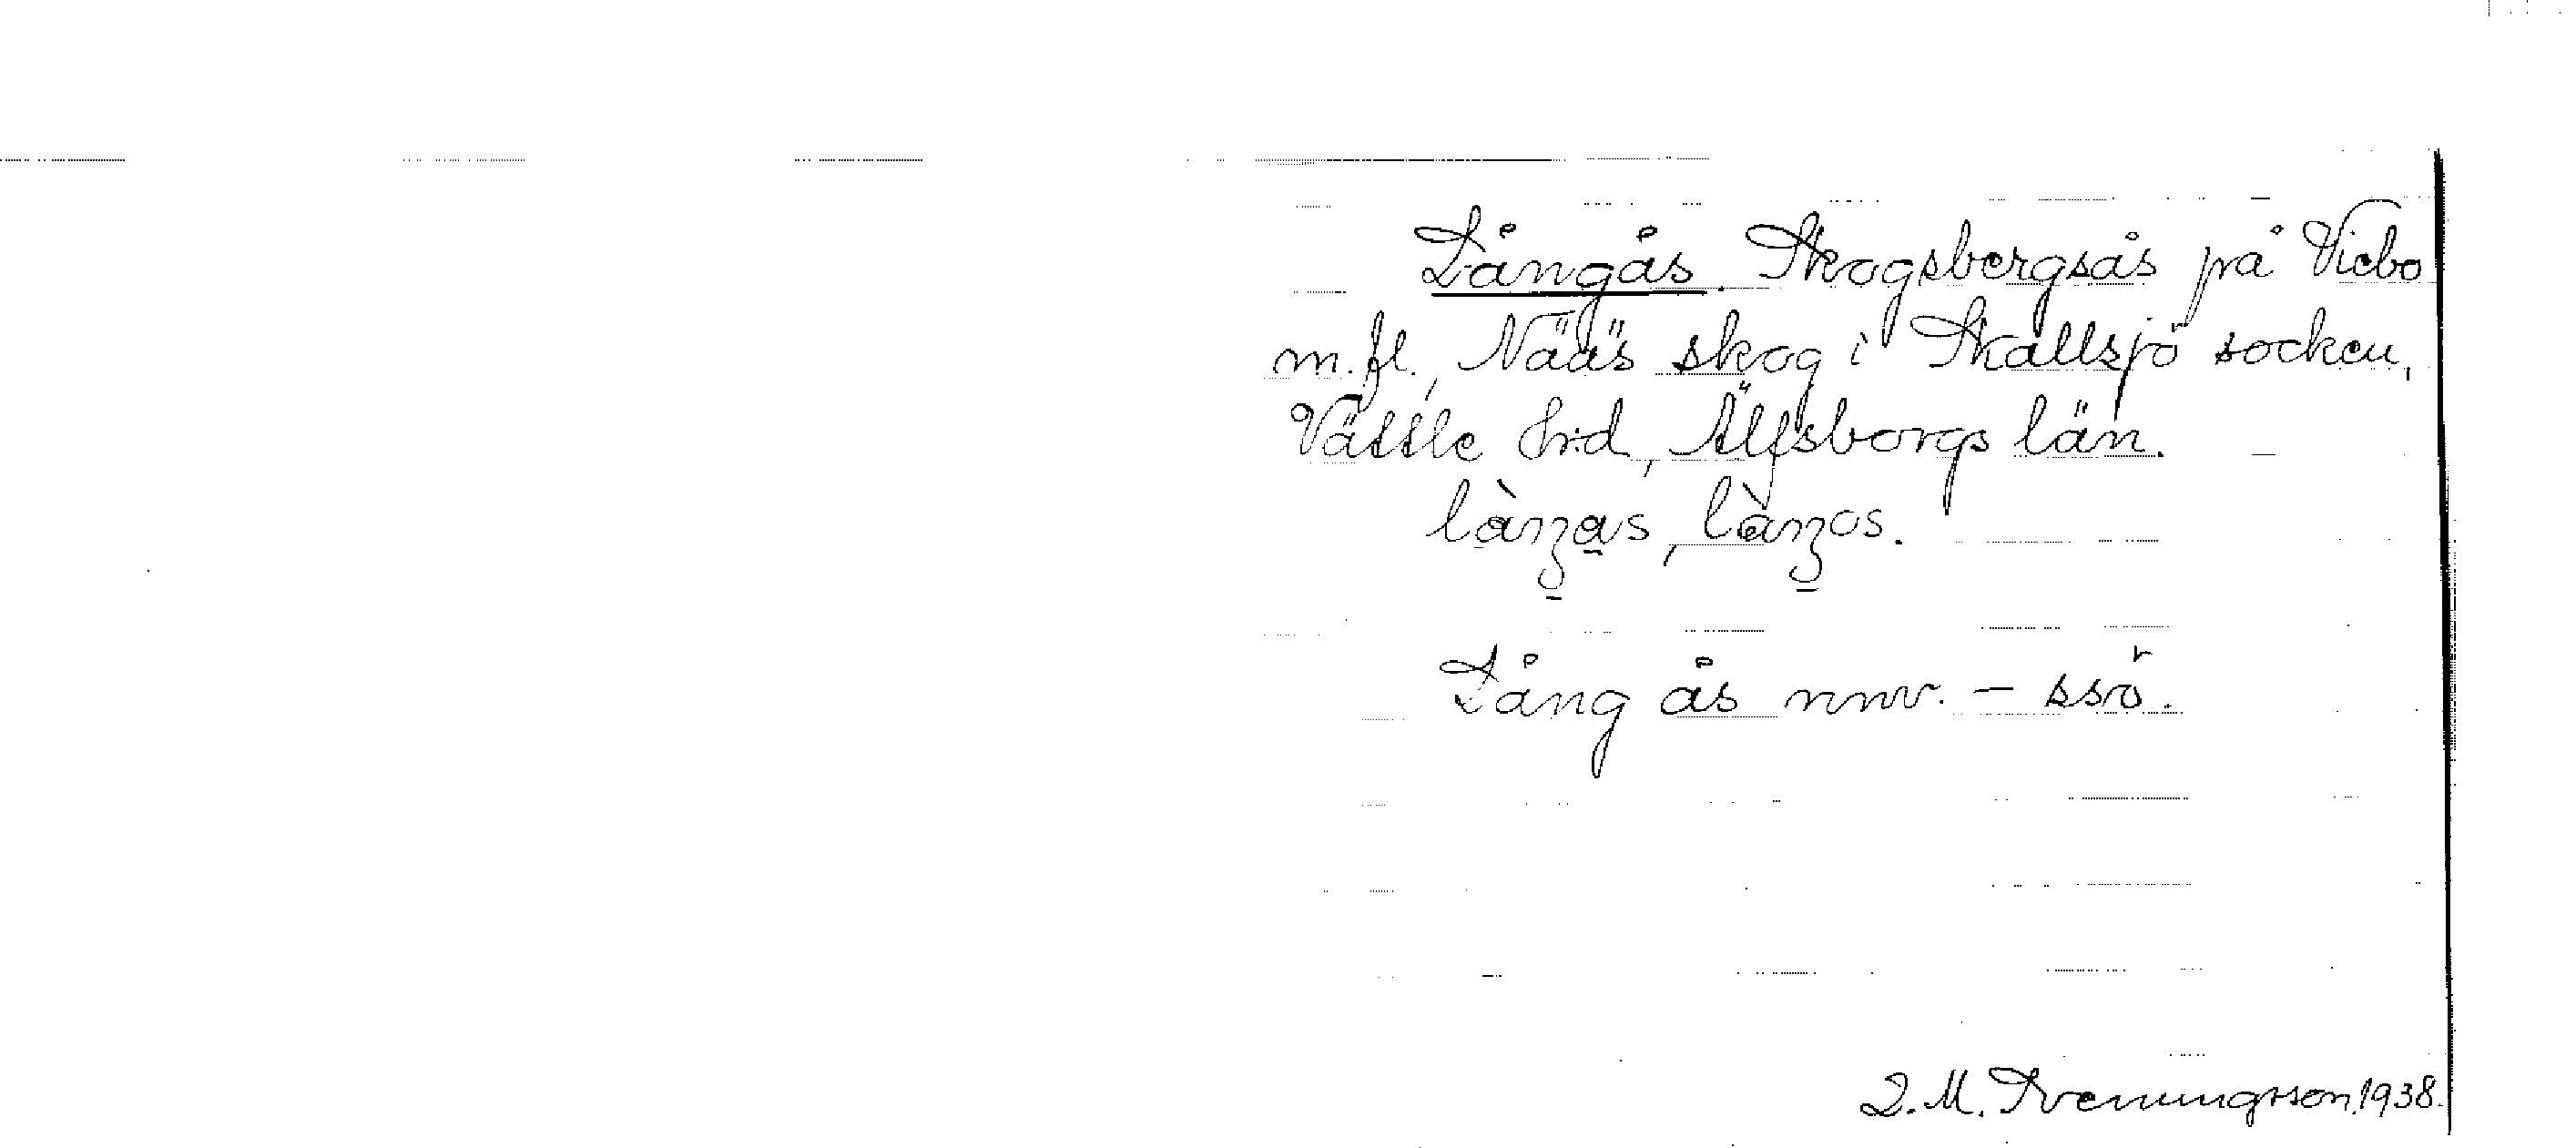 Långås. Skogsbergsås på Viebo
m.fl., Nääs skog i Skallsjö socken,
Vättle h:d, Älfsborgs län.
Lång ås nnv. – ssö.
J. M. Sveningsson. 1938.